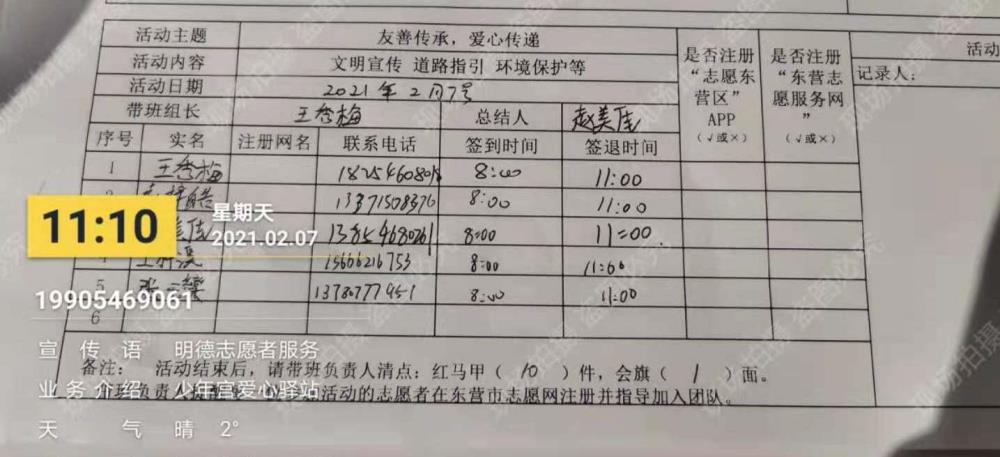 活动主题 友善传承，爱心传递 是否注册“志愿东营区”APP（√或×） 是否注册“东营志愿服务网”（√或×） 活动
活动内容 文明宣传 道路指引 环境保护等 记录人：
活动日期 2021年2月7号
带班组长 王秀梅 总结人 赵美佳
序号 实名 注册网名 联系电话 签到时间 签退时间
1 王秀梅 8:00 11:00
13371508376 8:00 11:00
美佳 8:00 11:00
15666216753 8:00 11:00
5 8:00 11:00
6
备注： 活动结束后，请带班负责人清点：红马甲（ 10 ）件，会旗（ 1 ）面。
活动的志愿者在东营市志愿网注册并指导加入团队。
11:10
星期天
2021.02.07
19905469061
宣传语 明德志愿者服务
业务介绍 少年宫爱心驿站
天气 晴 2°
现场拍摄 盗图必究